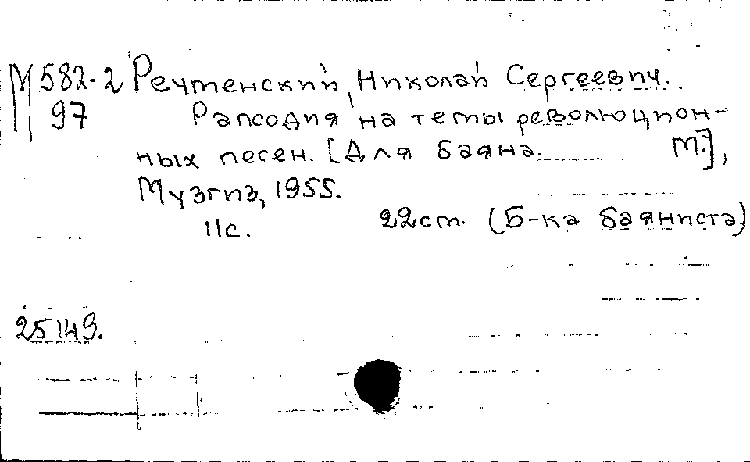 М 582-2 Речменский, Николай Сергеевич.
97 Рапсодия на темы революцион-
ных песен. [Для баяна. М.],
Музгиз, 1955.
11с. 22cm. (Б-ка баяниста)
25149.